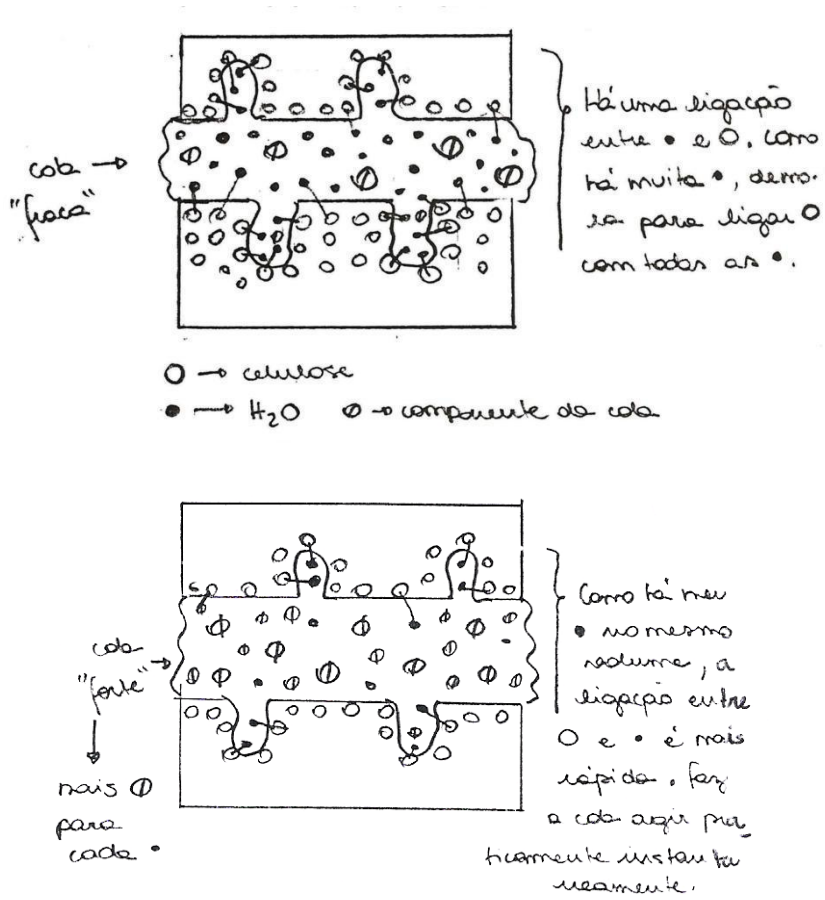 cola →
"fraca"
Há uma ligação
entre • e O. Como
há muita •, demo-
ra para ligar O
com todas as •.
O → celulose
• → H₂O ϕ → componente da cola
cola
"forte" →
mais ϕ
para
cada •
Como há men
• no mesmo
, a
ligação entre
O e • é mais
rápida. faz
a cola agir pra
ticamente instan ta
neamente.